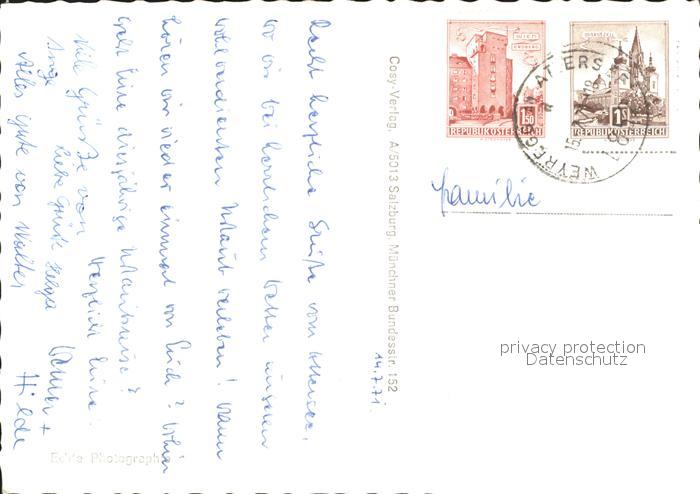 Recht herzliche Grüße vom Attersee,
wo wir bei herrlichem Wetter unseren
wohlverdienten Urlaub verleben! Wann
hören wir wieder einmal von Euch? Wohin
geht Eure diesjährige Urlaubsreise?
Herzlichst Eure
Viele Grüße von
Werner +
Hilde
liebe Grüße Helga
Alles Gute von Walter
14.7.71.
Cosy-Verlag, A/5013 Salzburg, Münchner Bundesstr. 152
Echte Photographie
WIEN
ERDBERG
1.50
REPUBLIK ÖSTERREICH
MARIAZELL
1S
REPUBLIK ÖSTERREICH
WEYREGG AM ATTERSEE
Familie
privacy protection
Datenschutz